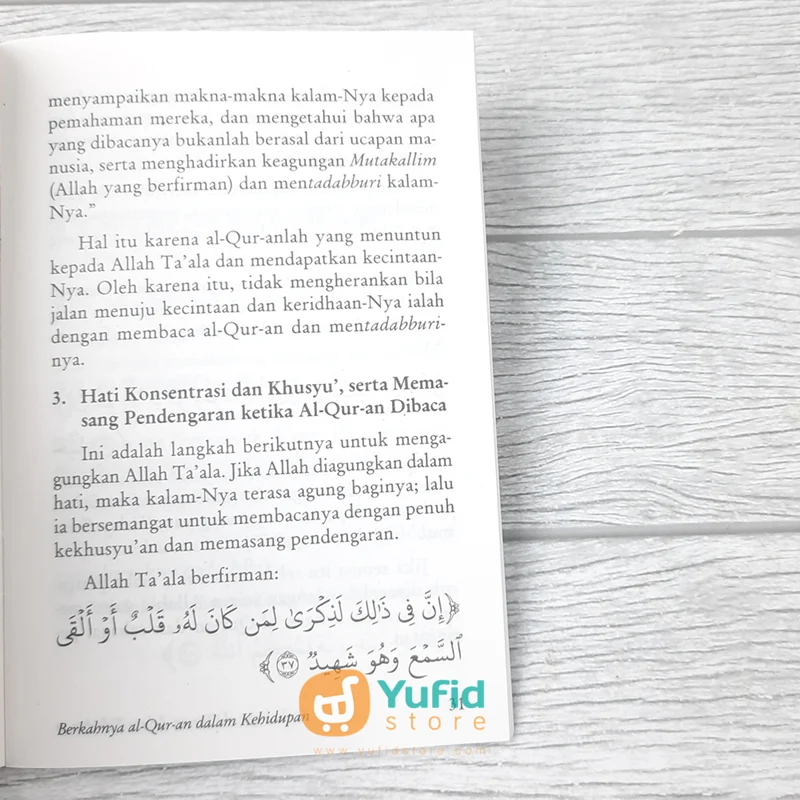 menyampaikan makna-makna kalam-Nya kepada
pemahaman mereka, dan mengetahui bahwa apa
yang dibacanya bukanlah berasal dari ucapan ma-
nusia, serta menghadirkan keagungan Mutakallim
(Allah yang berfirman) dan mentadabburi kalam-
Nya."
Hal itu karena al-Qur-anlah yang menuntun
kepada Allah Ta'ala dan mendapatkan kecintaan-
Nya. Oleh karena itu, tidak mengherankan bila
jalan menuju kecintaan dan keridhaan-Nya ialah
dengan membaca al-Qur-an dan mentadabburi-
nya.
3. Hati Konsentrasi dan Khusyu', serta Mema-
sang Pendengaran ketika Al-Qur-an Dibaca
Ini adalah langkah berikutnya untuk menga-
gungkan Allah Ta'ala. Jika Allah diagungkan dalam
hati, maka kalam-Nya terasa agung baginya; lalu
ia bersemangat untuk membacanya dengan penuh
kekhusyu'an dan memasang pendengaran.
Allah Ta'ala berfirman:
﴿إِنَّ فِي ذَٰلِكَ لَذِكْرَىٰ لِمَن كَانَ لَهُۥ قَلْبٌ أَوْ أَلْقَى
ٱلسَّمْعَ وَهُوَ شَهِيدٌ ٣٧﴾
Berkahnya al-Qur-an dalam Kehidupan 31
Yufid
store
www.yufidstore.com